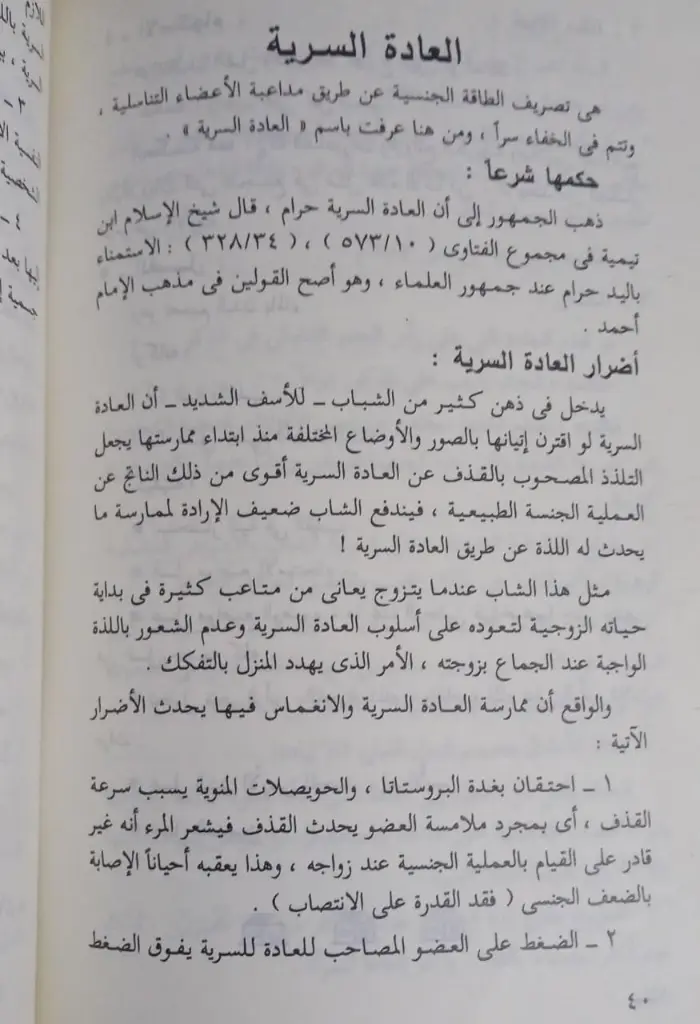 العادة السرية
هى تصريف الطاقة الجنسية عن طريق مداعبة الأعضاء التناسلية ،
وتتم فى الخفاء سراً ، ومن هنا عرفت باسم « العادة السرية » .
حكمها شرعاً :
ذهب الجمهور إلى أن العادة السرية حرام ، قال شيخ الإسلام ابن
تيمية فى مجموع الفتاوى ( ٥٧٣/١٠ ) ، ( ٣٢٨/٣٤ ) : الاستمناء
باليد حرام عند جمهور العلماء ، وهو أصح القولين فى مذهب الإمام
أحمد .
أضرار العادة السرية :
يدخل فى ذهن كثير من الشباب ــ للأسف الشديد ــ أن العادة
السرية لو اقترن إتيانها بالصور والأوضاع المختلفة منذ ابتداء ممارستها يجعل
التلذذ المصحوب بالقذف عن العادة السرية أقوى من ذلك الناتج عن
العملية الجنسة الطبيعية ، فيندفع الشاب ضعيف الإرادة لممارسة ما
يحدث له اللذة عن طريق العادة السرية !
مثل هذا الشاب عندما يتزوج يعانى من متاعب كثيرة فى بداية
حياته الزوجية لتعوده على أسلوب العادة السرية وعدم الشعور باللذة
الواجبة عند الجماع بزوجته ، الأمر الذى يهدد المنزل بالتفكك .
والواقع أن ممارسة العادة السرية والانغماس فيها يحدث الأضرار
الآتية :
١ ــ احتقان بغدة البروستاتا ، والحويصلات المنوية يسبب سرعة
القذف ، أى بمجرد ملامسة العضو يحدث القذف فيشعر المرء أنه غير
قادر على القيام بالعملية الجنسية عند زواجه ، وهذا يعقبه أحياناً الإصابة
بالضعف الجنسى ( فقد القدرة على الانتصاب ) .
٢ ــ الضغط على العضو المصاحب للعادة للسرية يفوق الضغط
٤٠